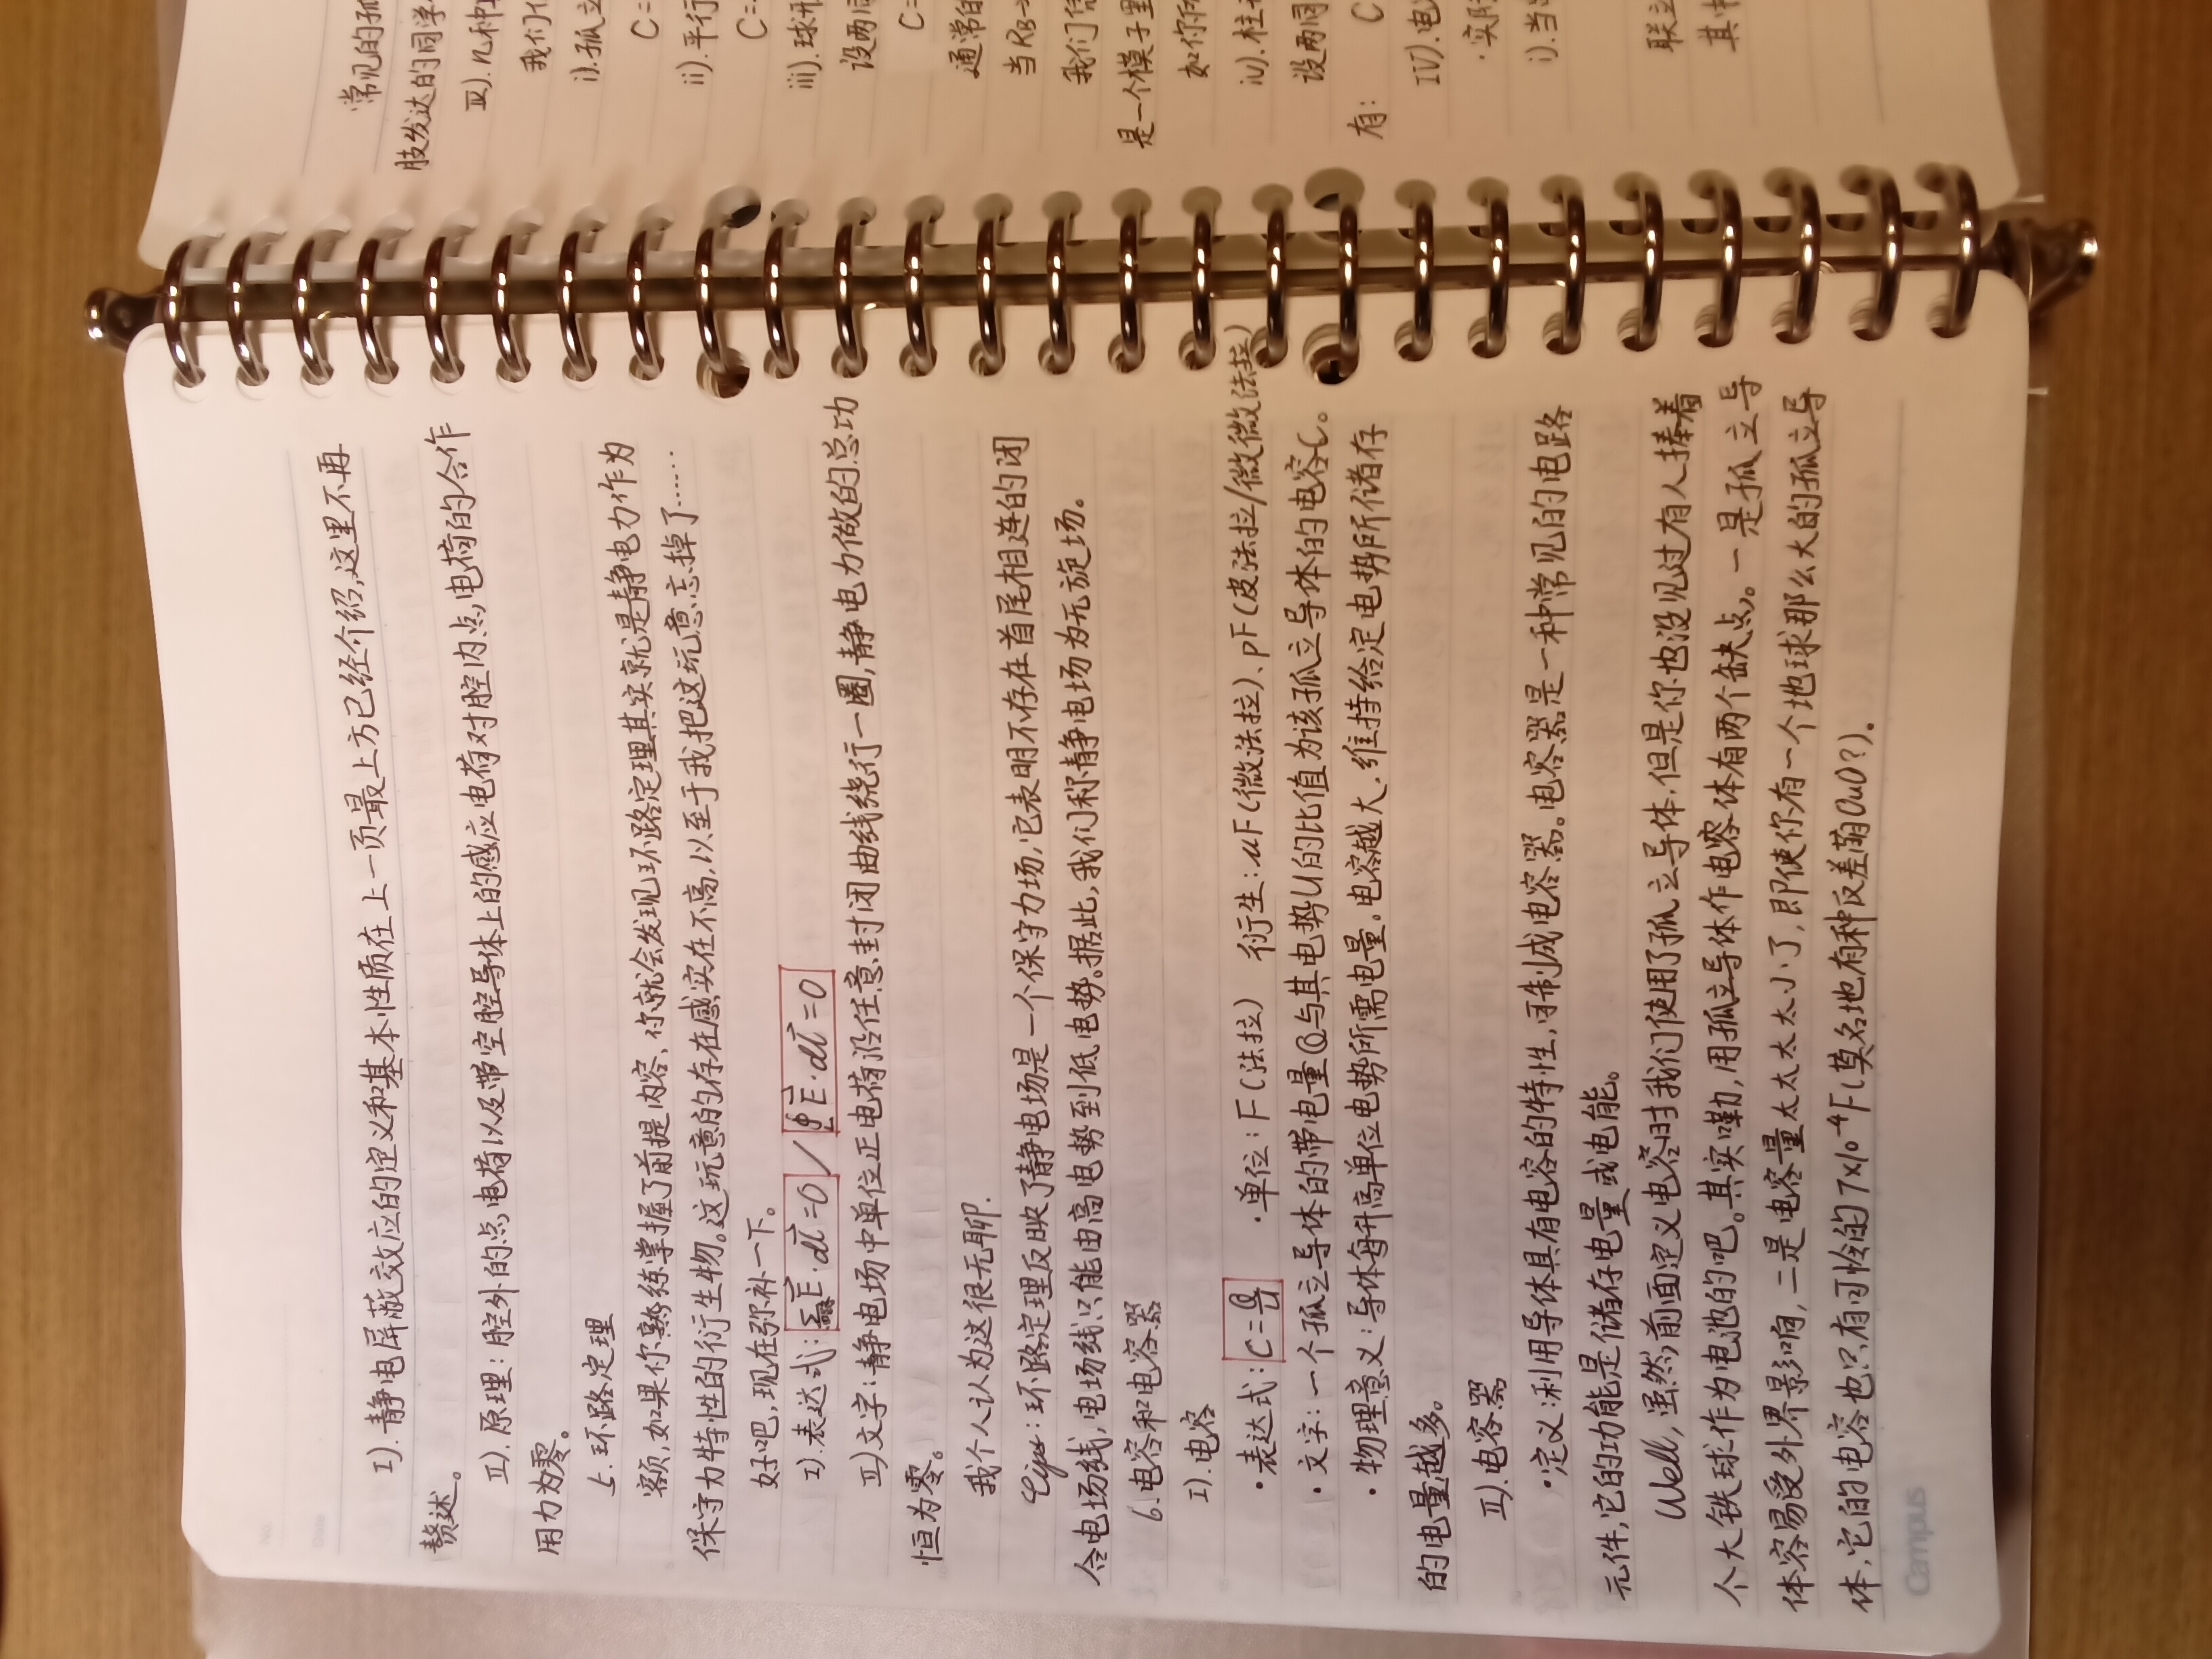 I).静电屏蔽效应的定义和基本性质在上一页最上方已经介绍,这里不再
赘述。
II).原理:腔外的点电荷以及带空腔导体上的感应电荷对腔内点电荷的合作
用力为零。
5.环路定理
额,如果你熟练掌握了前提内容,你就会发现环路定理其实就是静电力作为
保守力特性的衍生物。这玩意的存在感实在不高,以至于我把这玩意忘掉了……
好吧,现在弥补一下。
I).表达式:ΣE·dl=0/∮E·dl=0
II)文字:静电场中单位正电荷沿任意封闭曲线绕行一圈,静电力做的总功
恒为零。
我个人认为这很无聊.
Tips:环路定理反映了静电场是一个保守力场,它表明不存在首尾相连的闭
合电场线,电场线只能由高电势到低电势。据此,我们称静电场为无旋场。
6.电容和电容器
I).电容
·表达式:C=Q/U ·单位:F(法拉) 衍生:μF(微法拉)、pF(皮法拉/微微法拉)
·文字:一个孤立导体的带电量Q与其电势U的比值为该孤立导体的电容C。
·物理意义:导体每升高单位电势所需电量。电容越大,维持给定电势所储存
的电量越多。
II).电容器
·定义:利用导体具有电容的特性,可制成电容器。电容器是一种常见的电路
元件,它的功能是储存电量或电能。
Well,虽然,前面定义电容时我们使用了孤立导体,但是你也没见过有人捧着
个大铁球作为电池的吧。其实嘞,用孤立导体作电容体有两个缺点。一是孤立导
体容易受外界影响,二是电容量太太太太小了,即使你有一个地球那么大的孤立导
体,它的电容也只有可怜的7×10⁻⁴F(莫名地有种反差萌OuO?)。
Campus
常见的孤
肢发达的同学
III).几种
我们
i).孤立
C=
ii).平行
C=
iii).球形
设两
C=
通常的
当RB
我们
是一个模子里
如你所
iv).柱
设两同
有: C
IV).电
·实际
i).当
联立
其中